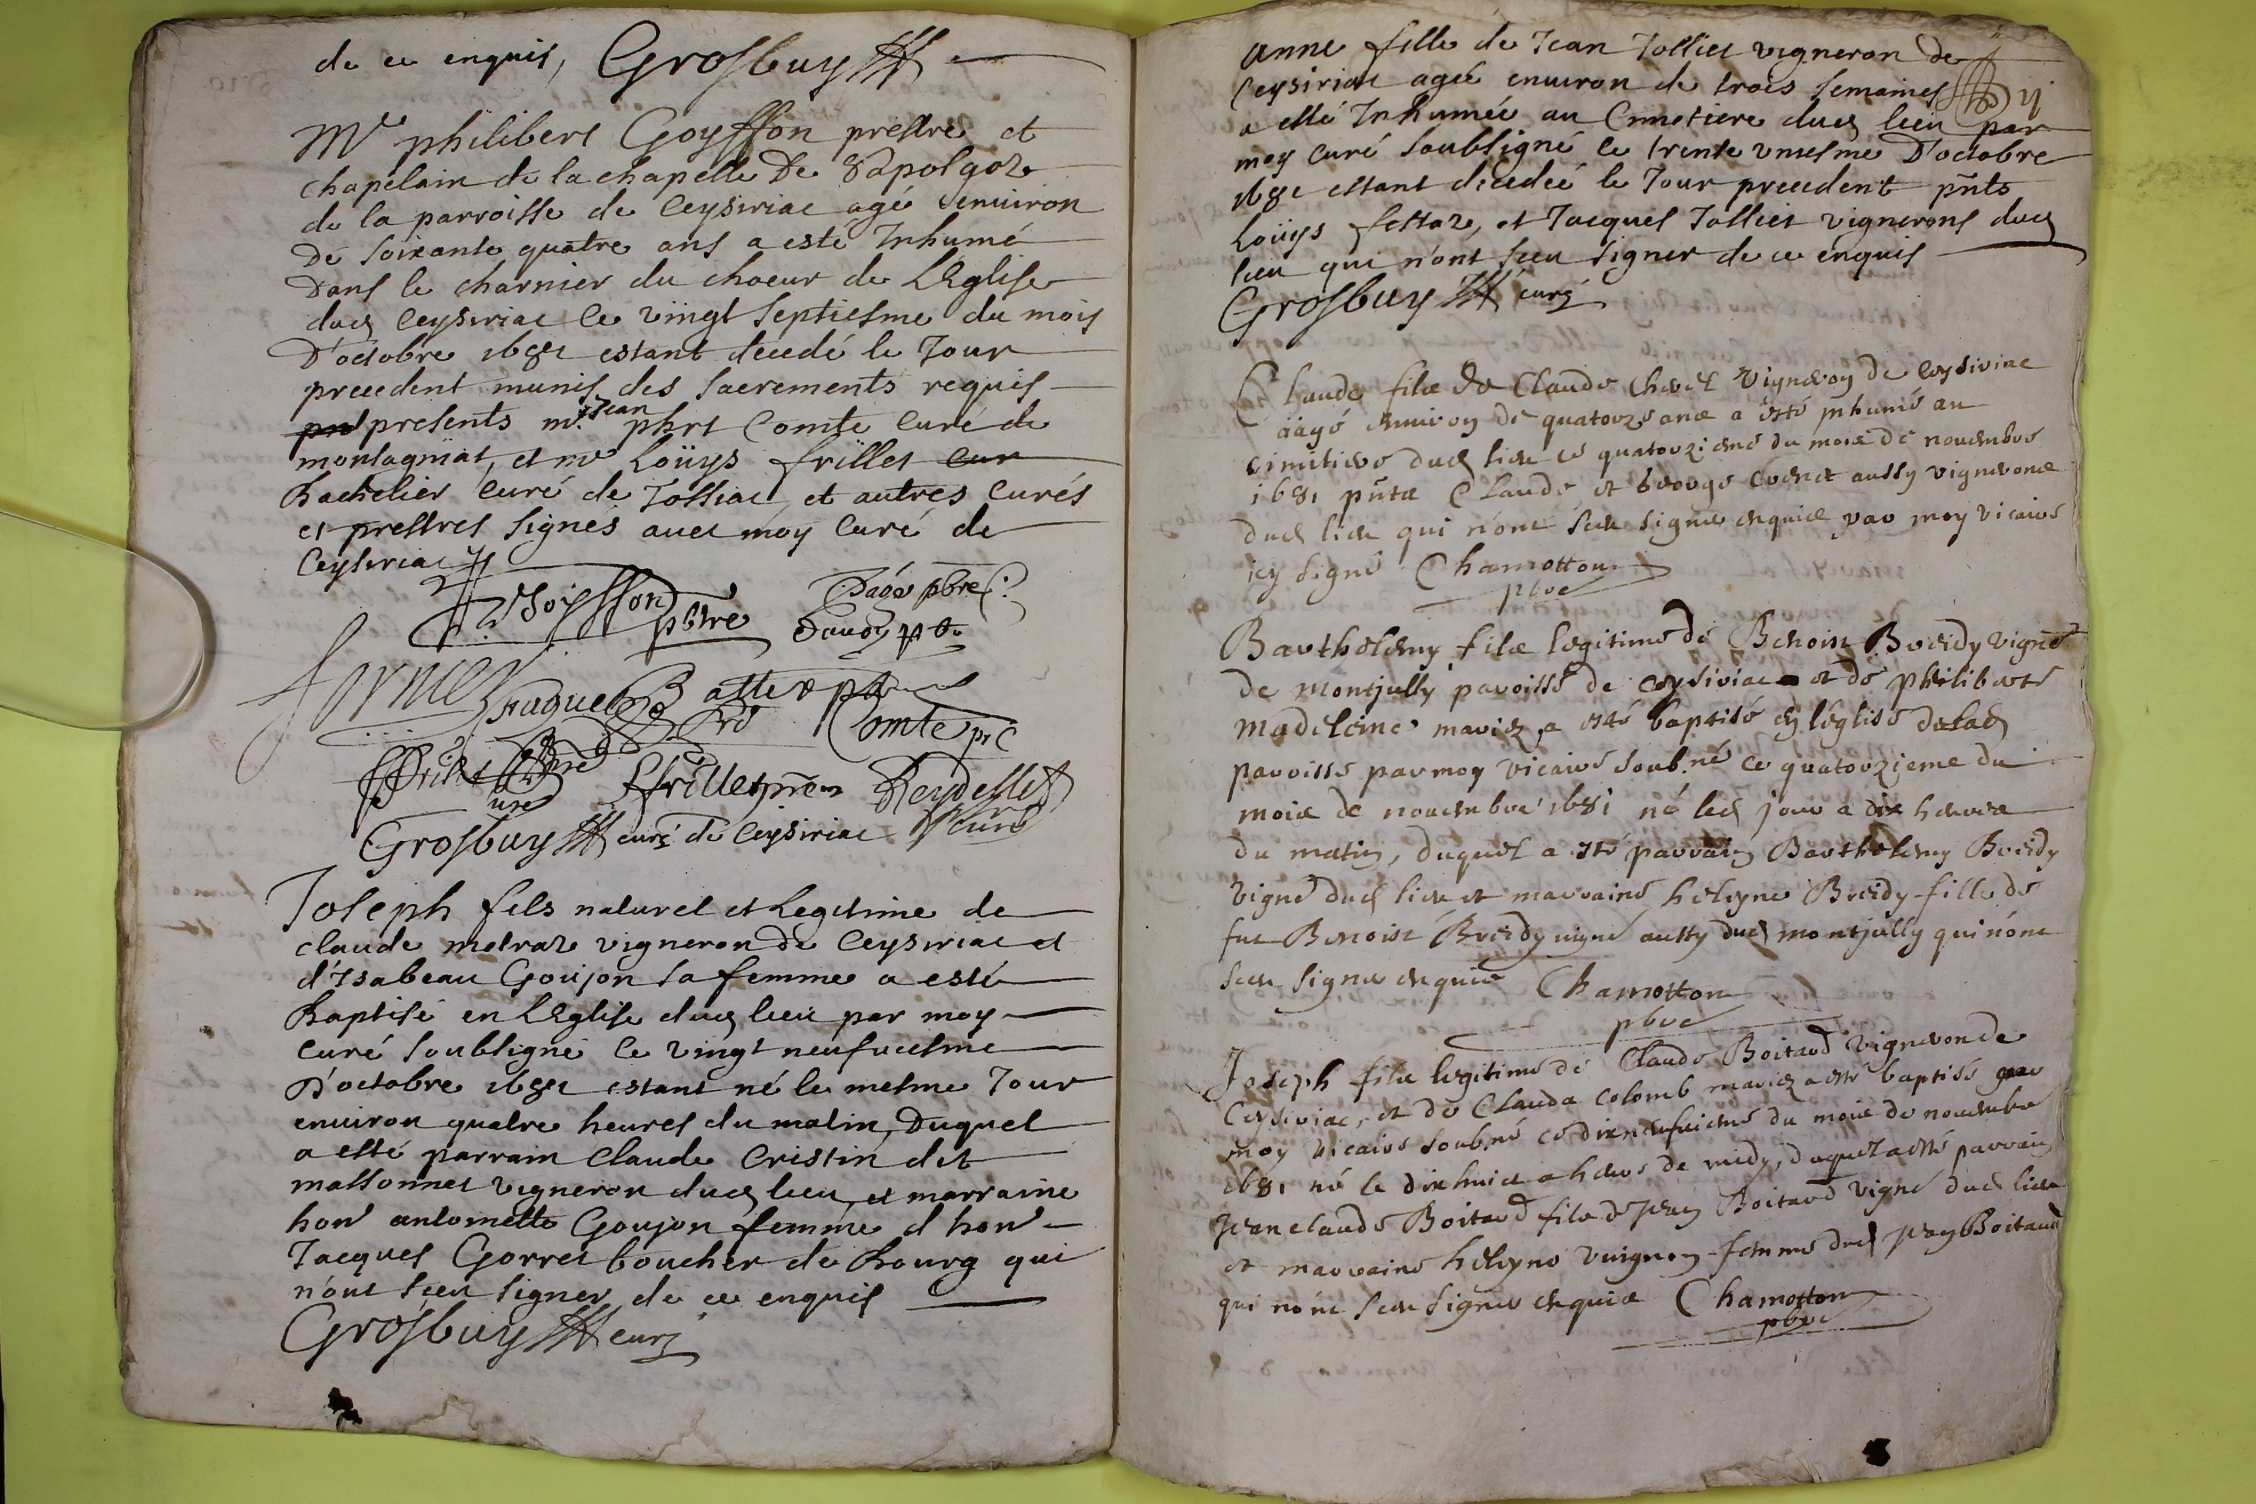 de ce enquis, Grosbuy
Mre philibert Goyffon prestre et
chapelain de la chapelle De
de la parroisse de Ceysiriac agé denuiron
De soixante quatre ans a esté Inhumé
Dans le charnier du choeur de L'Eglise
dud Ceysiriac le vingt septiesme du mois
D'octobre 1681 estant decedé le Jour
precedent munis des sacrements requis
presents mre Jean phrt Comte Curé de
montagniat, et mre Loüys frillet cur
Bachelier Curé de Jassiac, et autres Curés
et prestres signés auec moy Curé de
Ceysiriac
Goyffon pbtre pbre
Comte pr C
frillet Reydellet
Curé
Grosbuy curé de Ceysiriac
Joseph fils naturel et Legitime de
claude metraz vigneron de Ceysiriac et
d'Isabeau Goujon sa femme a esté
Baptisé en L'Eglise dud lieu par moy
curé soubsigné le vingt neufuiesme
D'octobre 1681 estant né le mesme Jour
enuiron quatre heures du matin, Duquel
a esté parrain Claude Cristin dit
massonnet vigneron dud lieu, et marraine
hon antoinette Goujon femme d hon
Jacques Gorret boucher de Bourg qui
n'ont sceu signer de ce enquis
Grosbuy curé
Anne fille de Jean Jolliet vigneron de
Ceysiriat agée enuiron de trois semaines
a esté Inhumée au Cimetiere dud lieu par
moy curé soubsigné le trente vniesme D'octobre
1681 estant decedée le Jour precedent pnts
Loüys fettaz, et Jacques Jolliet vignerons dud
lieu qui n'ont sceu signer de ce enquis
Grosbuy curé
Claude filz de Claude Chevel Vigneron de ceysiriac
aagé enuiron de quatorze ans a esté inhumé au
cimitiere dud lieu ce quatorzieme du mois de nouembre
1681 pnts Claude et George euenet aussy vignerons
dud lieu qui n'ont sceu signer enquis par moy vicaire
icy signé Chamotton
pbre
Barthelemy filz legitime de Benoist Breidy vigne
de montjully paroisse de ceysiriac et de philiberte
madeleine mariez, a esté baptisé en léglise delad
paroisse par moy vicaire soub.né ce quatorzieme du
mois de nouembre 1681 né led jour a dix heures
du matin, duquel a esté parrain Barthelemy Breidy
vigne dud lieu et marraine heleyne Breidy fille de
fut Benoist Breidy vigne aussy dud montjully qui n'ont
sceu signer enquis Chamotton
pbre
Joseph filz legitime de Claude Boitard vigneron de
Ceysiriac, et de Clauda Colomb mariez a esté baptisé par
moy vicaire soub.né ce dixneufuieme du mois de nouembre
1681 né le dixhuict a heure de midy, duquel a esté parrain
Jean claude Boitard filz de Jean Boitard vigne dud lieu
et marraine heleyne Vuignon femme dud Jean Boitard
qui n'ont sceu signer enquis Chamotton
pbre